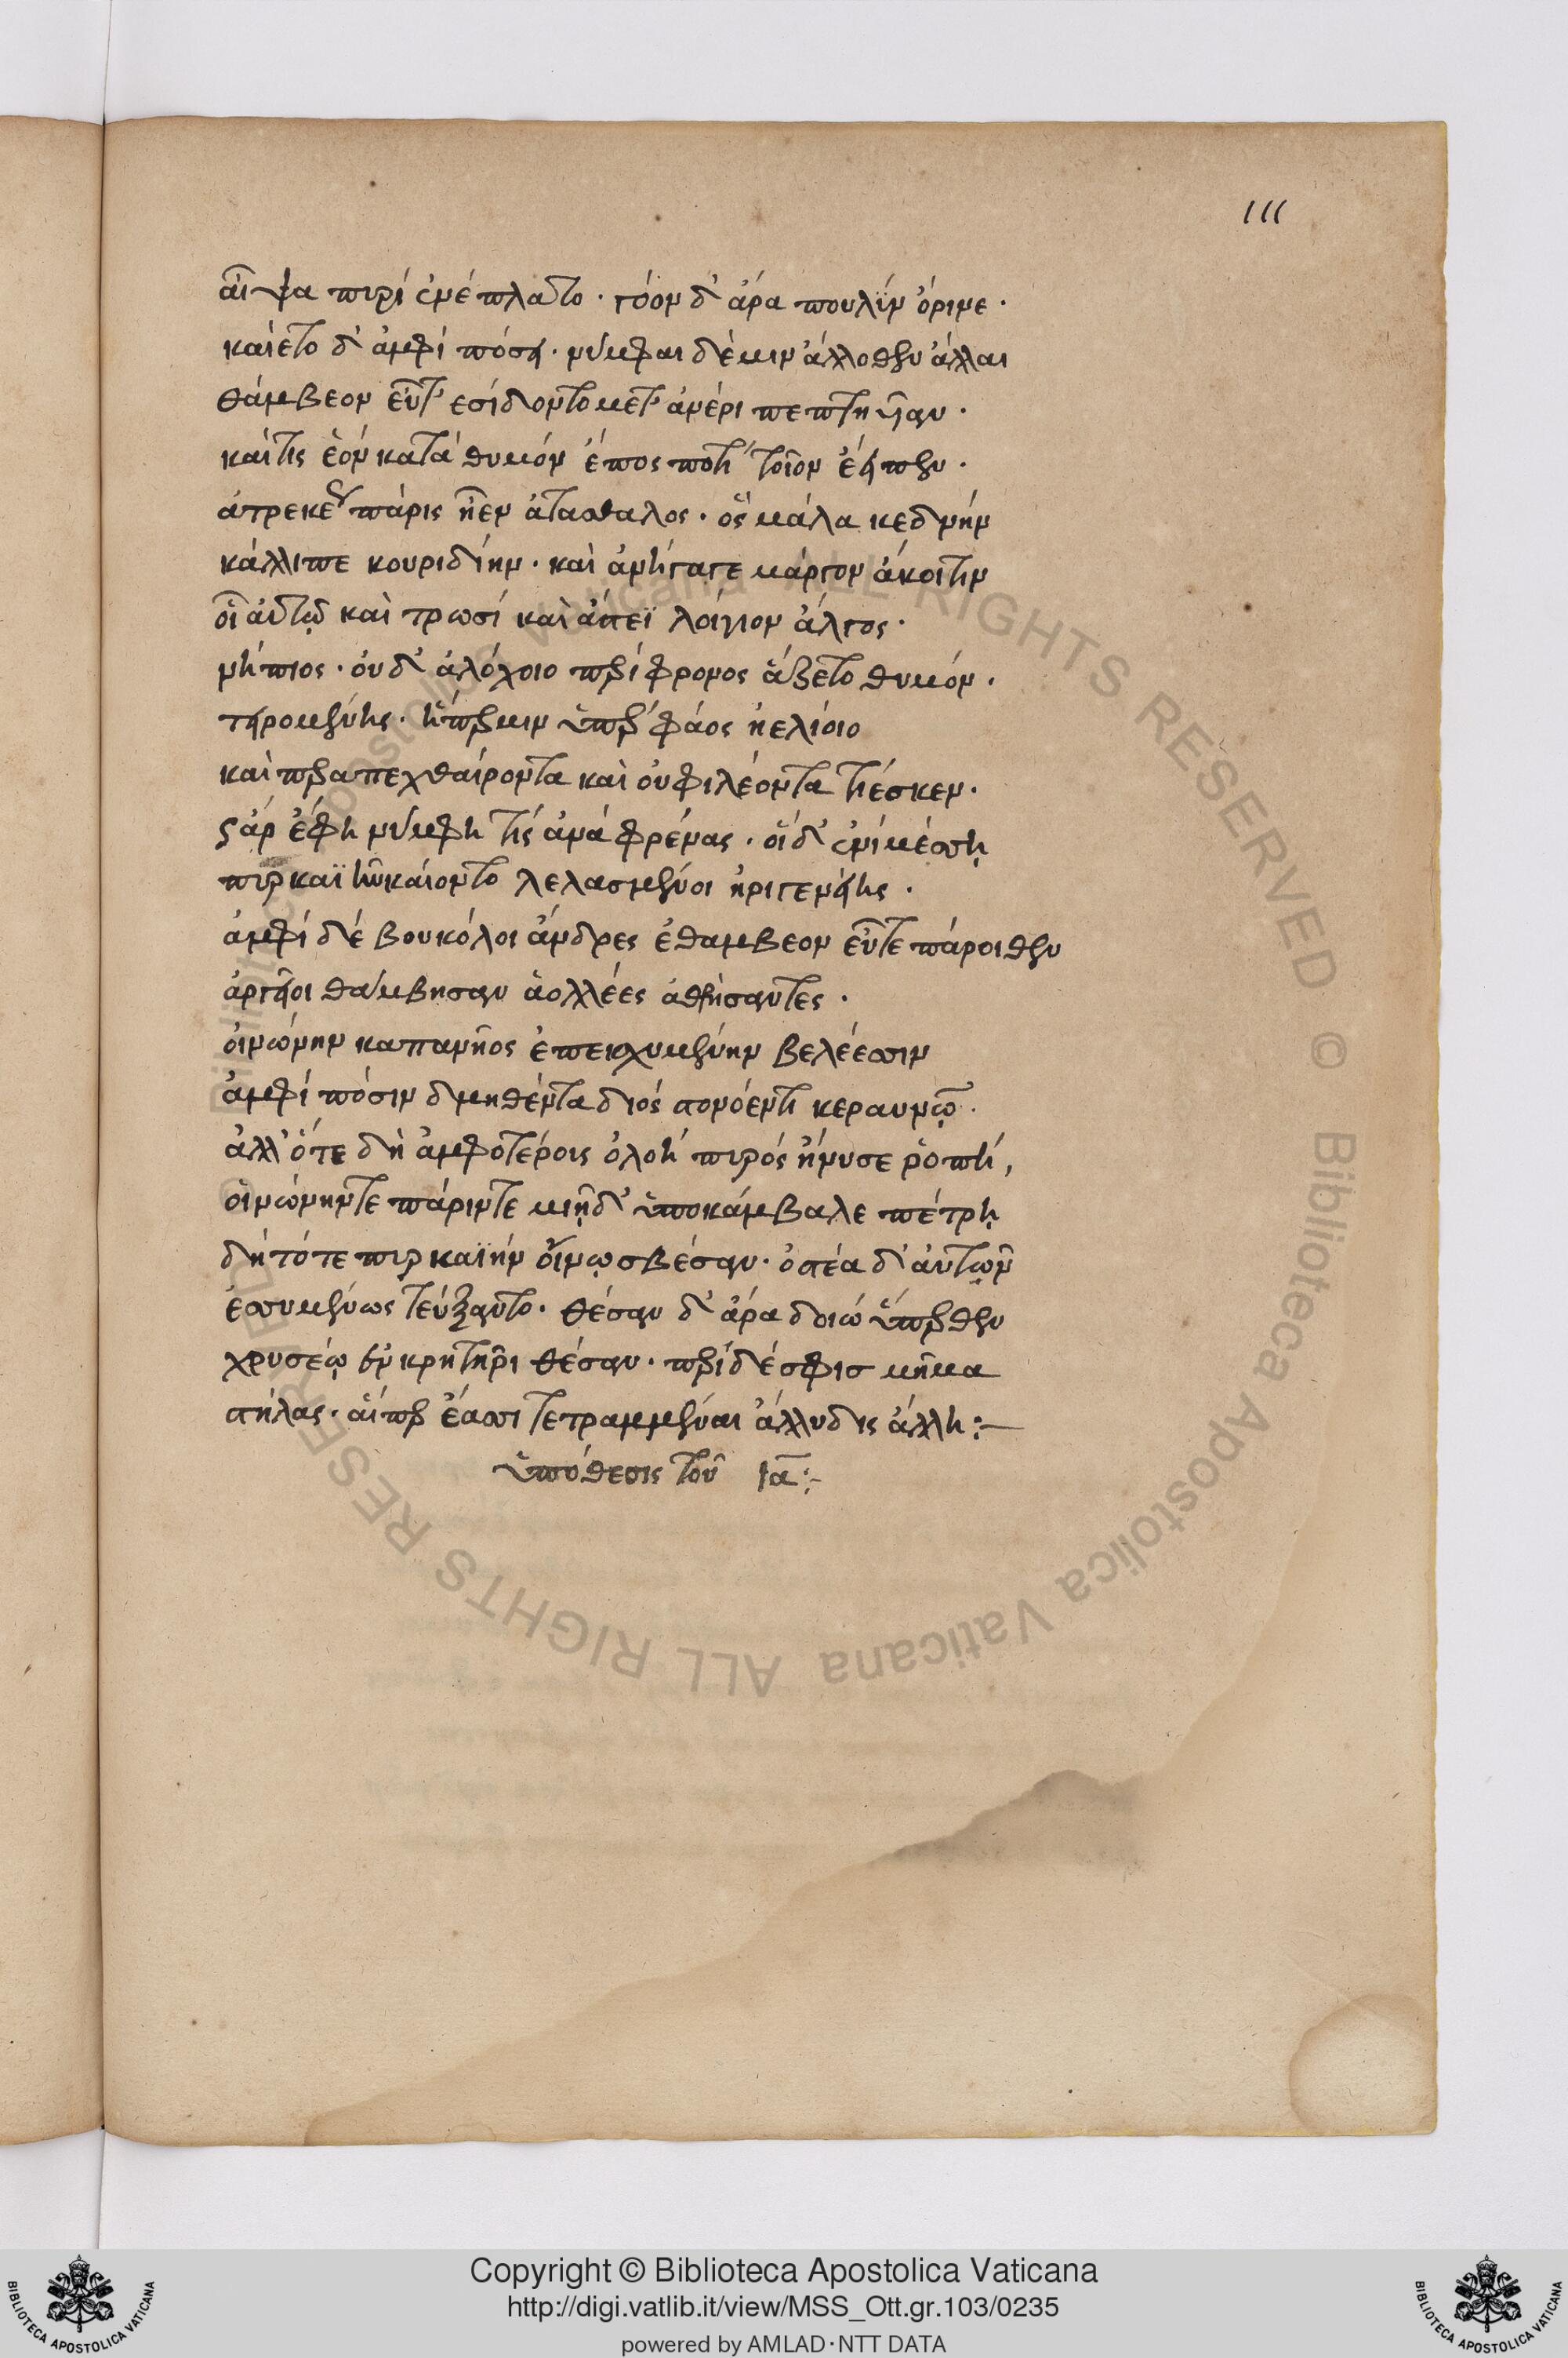 111
αἶψα πυρὶ ἐνέπλατο· γόον δ' ἄρα πουλὺν ὄρινε·
καίετο δ' ἀμφὶ πόσει· νύμφαι δέ μιν ἄλλοθεν ἄλλαι
θάμβεον εὖτ' εσίδοντο μετ' ἀνέρι πεπτηῦῖαν·
καί τις ἑὸν κατὰ θυμὸν ἔπος ποτὶ τοῖον ἔειπεν·
ἀτρεκέως πάρις ἦεν ἀτάσθαλος· ὃς μάλα κεδνὴν
κάλλιπε κουριδίην· καὶ ἀνήγαγε μάργον ἄκοιτιν
οἷ αὐτῷ καὶ τρωσὶ καὶ ἄστεϊ λοίγιον ἄλγος·
νήπιος· οὐδ' ἀλόχοιο περίφρονος ἅζετο θυμὸν·
τειρομένης· ἥπερ μιν ὑπὲρ φάος ἠελίοιο
καὶ περ ἀπεχθαίροντα καὶ οὐ φιλέοντα τίεσκεν·
ὣς ἄρ ἔφη νύμφη τὶς ἀνὰ φρένας· οἱ δ' ἐνὶ μέσσῃ
πυρκαϊῇ καίοντο λελασμένοι ἠριγενείης·
ἀμφὶ δὲ βουκόλοι ἄνδρες ἐθάμβεον εὖτε πάροιθεν
ἀργεῖοι θάμβησαν ἀολλέες ἀθρήσαντες·
οἰνώνην καπανῆος ἐπεκχυμένην βελέεσσιν
ἀμφὶ πόσιν δμηθέντα διὸς στονόεντι κεραυνῷ·
ἀλλ' ὅτε δὴ ἀμφοτέροις ὀλοὴ πυρὸς ἤνυσε ῥοπή,
οἰνώνην τε πάριν τε μιῇ δ' ὑποκάμβαλε πέτρῃ
δὴ τότε πυρκαϊὴν οἴνῳ σβέσαν· ὀστέα δ' αὐτῶν
ἐσσυμένως τεύξαντο· θέσαν δ' ἄρα δοιώ ὕπερθεν
χρυσέῳ ἐν κρητῆρι θέσαν· περὶ δέ σφισ μῆμα
στήλας· αἵπερ ἔασσι τετραμμέναι ἄλλυδις ἄλλη:—
ὑπόθεσις τοῦ ια:-
Copyright © Biblioteca Apostolica Vaticana
http://digi.vatlib.it/view/MSS_Ott.gr.103/0235
powered by AMLAD·NTT DATA